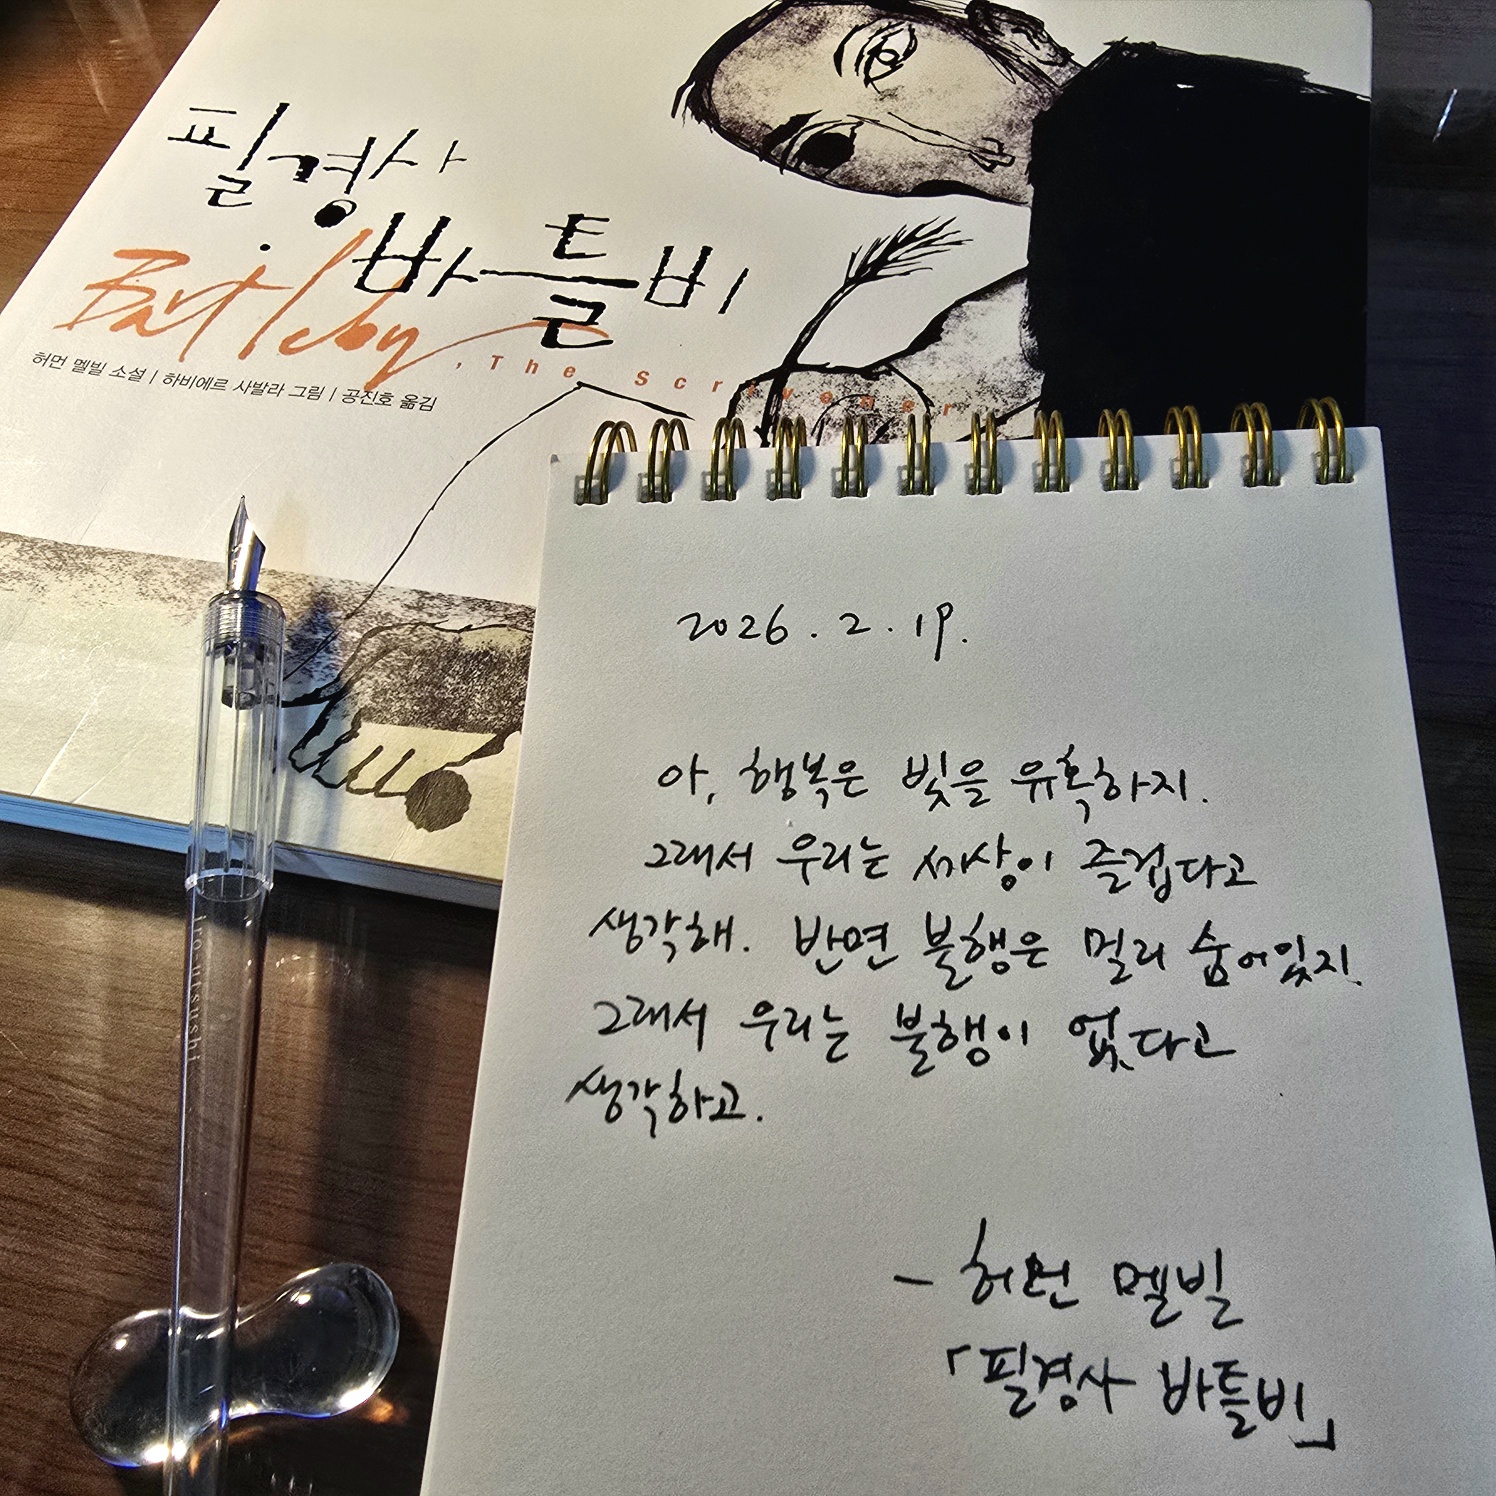 필경사
바틀비
Bartleby
, The Scrivener
허먼 멜빌 소설 | 하비에르 사발라 그림 | 공진호 옮김
2026. 2. 19.
아, 행복은 빛을 유혹하지.
그래서 우리는 세상이 즐겁다고
생각해. 반면 불행은 멀리 숨어있지.
그래서 우리는 불행이 없다고
생각하고.
- 허먼 멜빌
「필경사 바틀비」
irojisushi